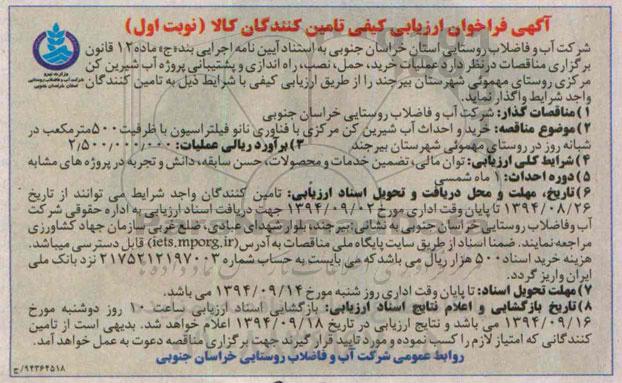 آگهی فراخوان ارزیابی کیفی تامین کنندگان کالا (نوبت اول)
وزارت نیرو
شرکت آب و فاضلاب روستایی
استان خراسان جنوبی
شرکت آب و فاضلاب روستایی استان خراسان جنوبی به استناد آیین نامه اجرایی بند «ج» ماده ۱۲ قانون
برگزاری مناقصات در نظر دارد عملیات خرید، حمل، نصب، راه اندازی و پشتیبانی پروژه آب شیرین کن
مرکزی روستای مهموئی شهرستان بیرجند را از طریق ارزیابی کیفی با شرایط ذیل به تامین کنندگان
واجد شرایط واگذار نماید.
۱) مناقصات گذار: شرکت آب و فاضلاب روستایی خراسان جنوبی
۲) موضوع مناقصه: خرید و احداث آب شیرین کن مرکزی با فناوری نانو فیلتراسیون با ظرفیت ۵۰۰ مترمکعب در
شبانه روز در روستای مهموئی شهرستان بیرجند ۳) برآورد ریالی عملیات: ۲٫۵۰۰٫۰۰۰٫۰۰۰
۴) شرایط کلی ارزیابی: توان مالی، تضمین خدمات و محصولات، حسن سابقه، دانش و تجربه در پروژه های مشابه
۵) دوره احداث: ۱ ماه شمسی
۶) تاریخ، مهلت و محل دریافت و تحویل اسناد ارزیابی: تامین کنندگان واجد شرایط می توانند از تاریخ
۱۳۹۴/۰۸/۲۶ تا پایان وقت اداری مورخ ۱۳۹۴/۰۹/۰۲ جهت دریافت اسناد ارزیابی به اداره حقوقی شرکت
آب وفاضلاب روستایی خراسان جنوبی به نشانی: بیرجند، بلوار شهدای عبادی، ضلع غربی سازمان جهاد کشاورزی
مراجعه نمایند. ضمنا اسناد از طریق سایت پایگاه ملی مناقصات به آدرس (iets.mporg.ir) قابل دسترسی میباشد.
هزینه خرید اسناد ۵۰۰ هزار ریال می باشد که می بایست به حساب شماره ۲۱۷۵۲۱۲۱۹۷۰۰۳ نزد بانک ملی
ایران واریز گردد.
۷) مهلت تحویل اسناد: تا پایان وقت اداری روز شنبه مورخ ۱۳۹۴/۰۹/۱۴ می باشد.
۸) تاریخ بازگشایی و اعلام نتایج اسناد ارزیابی: بازگشایی اسناد ارزیابی ساعت ۱۰ روز دوشنبه مورخ
۱۳۹۴/۰۹/۱۶ می باشد و نتایج ارزیابی در تاریخ ۱۳۹۴/۰۹/۱۸ اعلام خواهد شد. بدیهی است از تامین
کنندگانی که امتیاز لازم را کسب نموده و مورد تایید قرار گیرند جهت برگزاری مناقصه دعوت به عمل خواهد آمد.
روابط عمومی شرکت آب و فاضلاب روستایی خراسان جنوبی
۹۴۳۶۴۵۱۸/ج